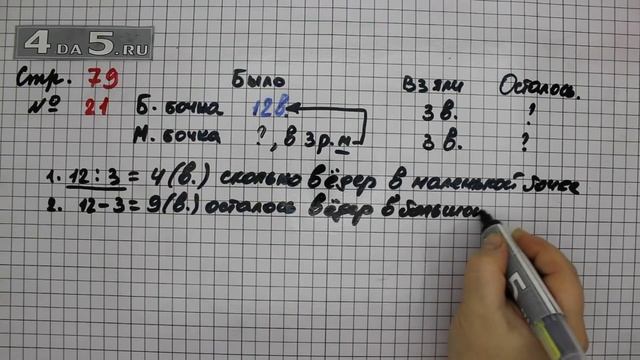 4 DA 5.RU
Стр. 79 Было Взяли Осталось.
№ 21 Б. бочка 12в. 3 в. ?
М. бочка ?, в 3 р. м 3 в. ?
1. 12 : 3 = 4 (в.) сколько вёдер в маленькой бочке
2. 12 - 3 = 9 (в.) осталось вёдер в большой